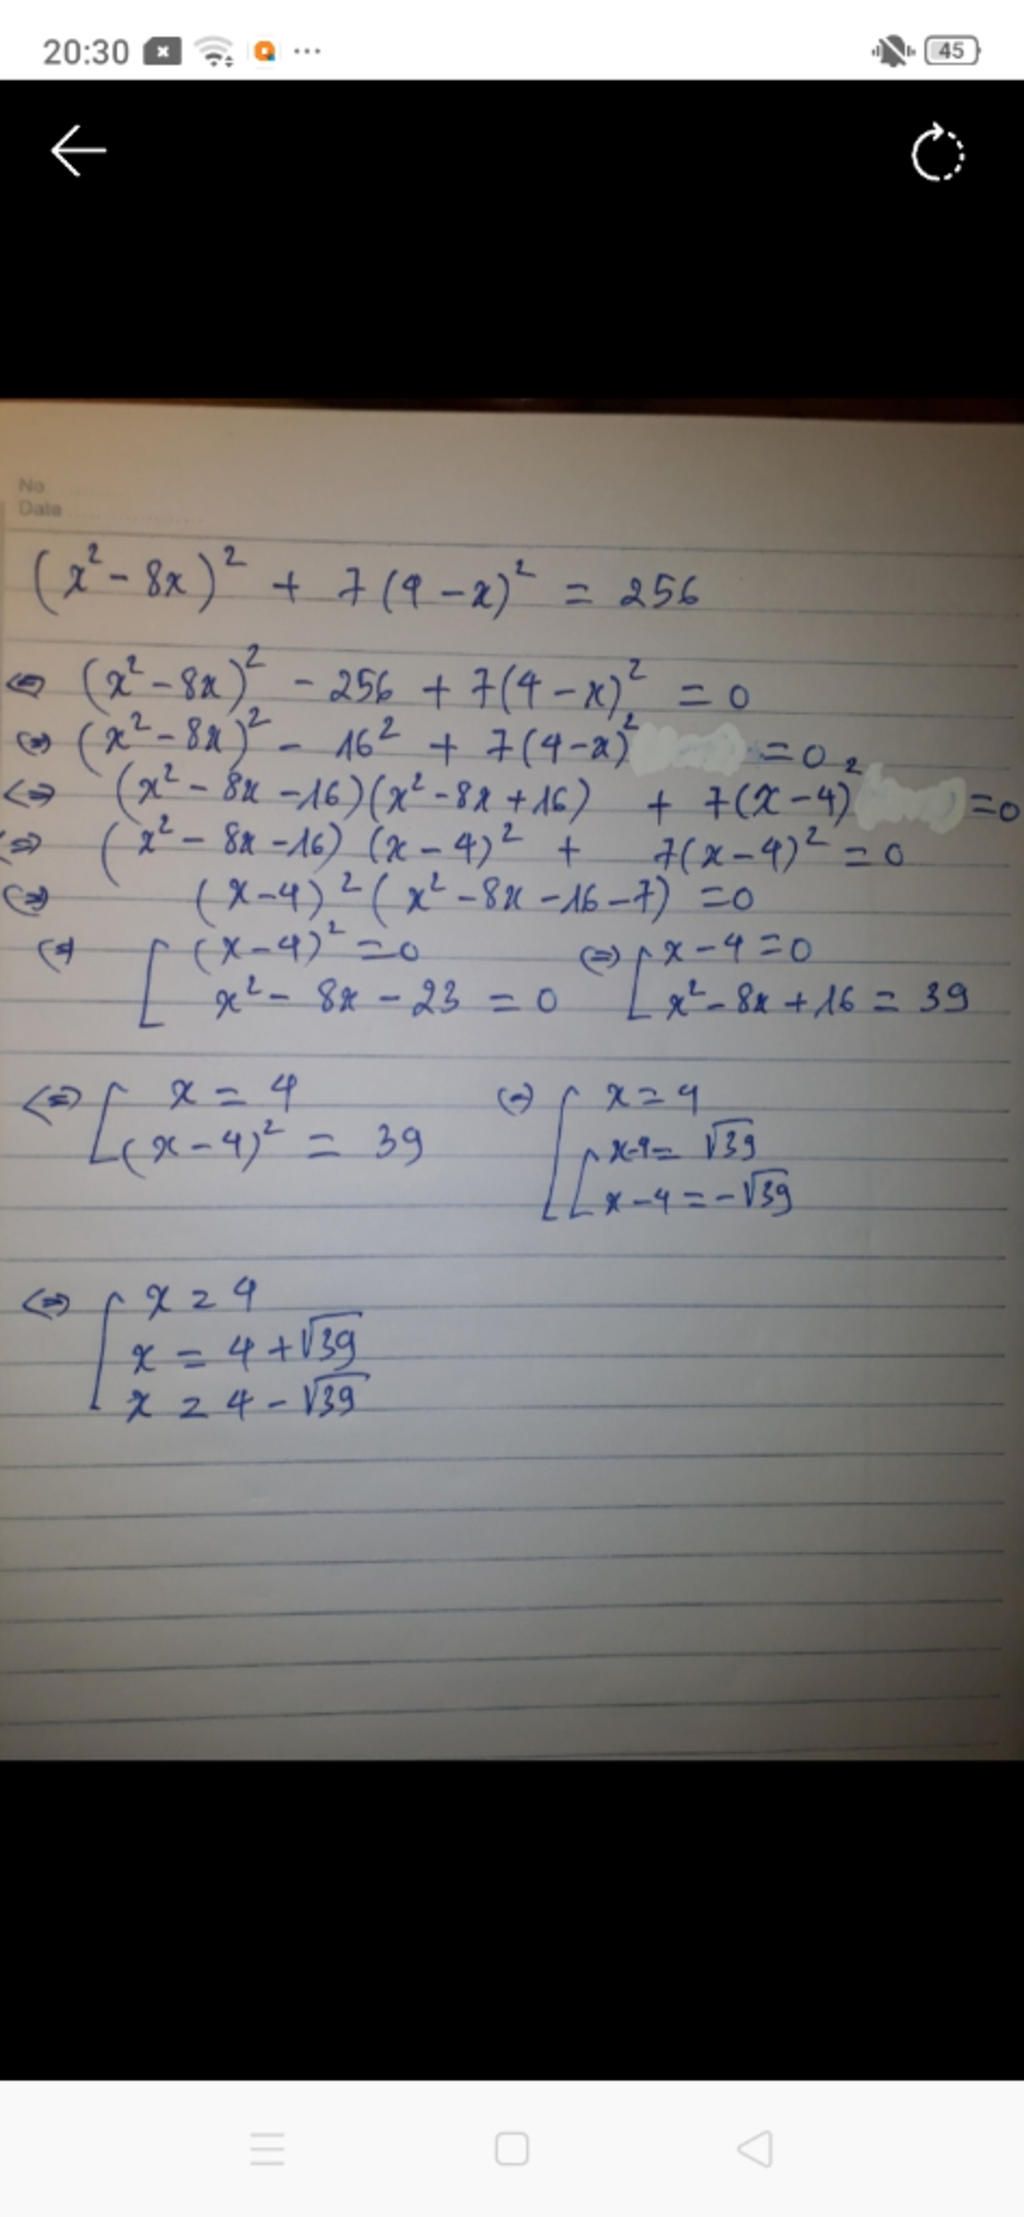 20:30
45
No
Date
(x² - 8x)² + 7(4 - x)² = 256
⇔ (x² - 8x)² - 256 + 7(4 - x)² = 0
⇔ (x² - 8x)² - 16² + 7(4 - x)² = 0
⇔ (x² - 8x - 16)(x² - 8x + 16) + 7(x - 4)² = 0
⇔ (x² - 8x - 16)(x - 4)² + 7(x - 4)² = 0
⇔ (x - 4)²(x² - 8x - 16 - 7) = 0
⇔ [ (x - 4)² = 0 ⇔ [ x - 4 = 0
x² - 8x - 23 = 0 x² - 8x + 16 = 39
⇔ [ x = 4 ⇔ [ x = 4
(x - 4)² = 39 [ x - 4 = √39
x - 4 = -√39
⇔ [ x = 4
x = 4 + √39
x = 4 - √39